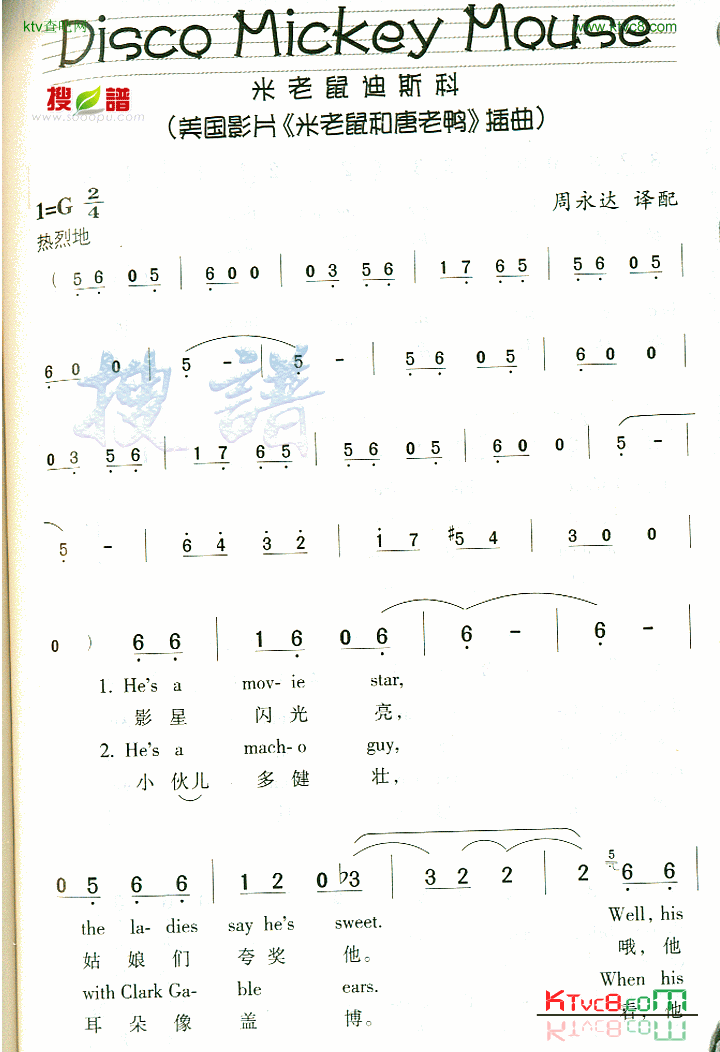 ktv查吧网
www.ktvc8.com
Disco Mickey Mouse
搜谱
www.sooopu.com
米老鼠迪斯科
(美国影片《米老鼠和唐老鸭》插曲)
1=G 2/4
周永达 译配
热烈地
( 5 6 0 5 | 6 0 0 | 0 3 5 6 | 1 7 6 5 | 5 6 0 5 |
6 0 0 | 5 - | 5 - | 5 6 0 5 | 6 0 0 |
搜譜
0 3 5 6 | 1 7 6 5 | 5 6 0 5 | 6 0 0 | 5 - |
5 - | 6 4 3 2 | 1 7 #5 4 | 3 0 0 |
0 ) 6 6 | 1 6 0 6 | 6 - | 6 - |
1. He's a mov-ie star,
影 星 闪 光 亮,
2. He's a mach-o guy,
小 伙儿 多 健 壮,
0 5 6 6 | 1 2 0 b3 | 3 2 2 | 2 5 6 6 |
the la- dies say he's sweet. Well, his
姑 娘 们 夸 奖 他。 哦, 他
with Clark Ga- ble ears. When his
耳 朵 像 盖 博。 看, 他
KTvc8.com